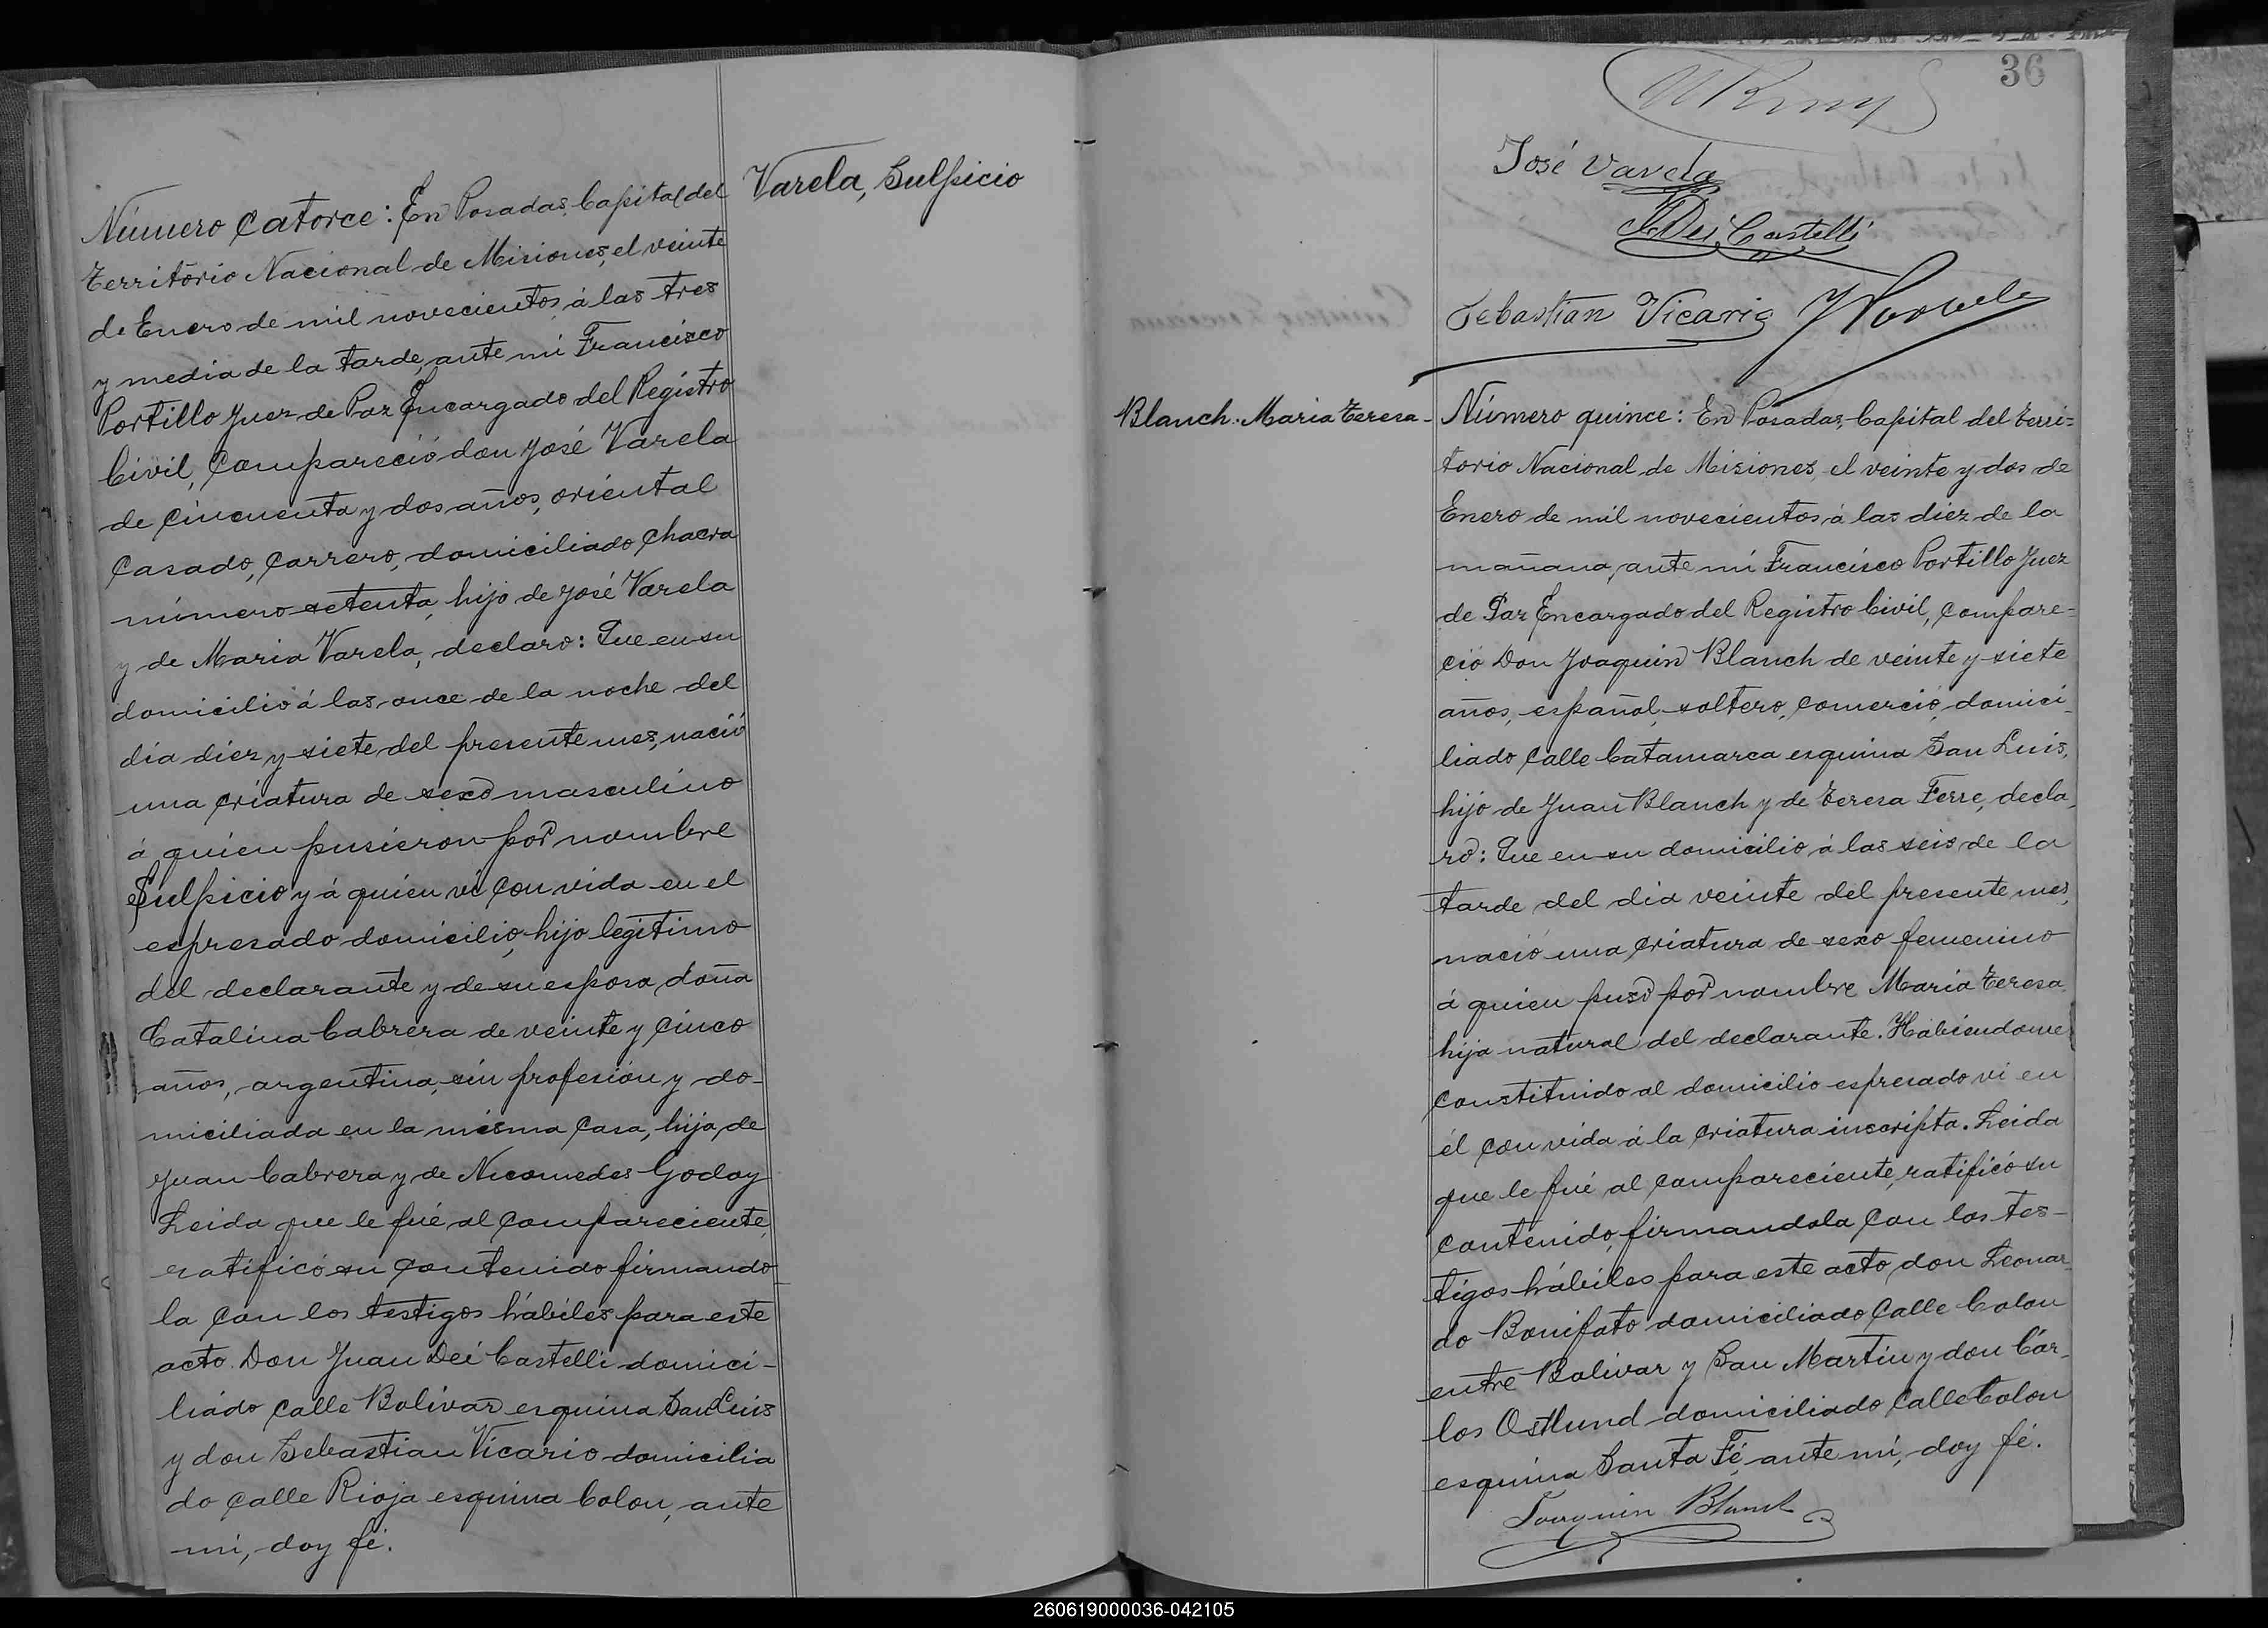 Varela, Sulpicio
Número Catorce: En Posadas, Capital del
Territorio Nacional de Misiones, el veinte
de Enero de mil novecientos, á las tres
y media de la tarde, ante mi Francisco
Portillo Juez de Paz Encargado del Registro
Civil, Compareció don José Varela
de Cincuenta y dos años, oriental
Casado, Carrero, domiciliado Chacra
número setenta, hijo de José Varela
y de Maria Varela, declaro: Que en su
domicilio á las once de la noche del
dia diez y siete del presente mes, nació
una Criatura de sexo masculino
á quien pusieron por nombre
Sulpicio y á quien vi Con vida en el
espresado domicilio, hijo legitimo
del declarante y de su esposa, doña
Catalina Cabrera de veinte y Cinco
años, argentina, sin profesion y do-
miciliada en la misma Casa, hija de
Juan Cabrera y de Nicomedes Godoy
Leida que le fué al Compareciente,
ratificó su Contenido firmando
la Con los testigos hábiles para este
acto. Don Juan Dei Castelli domici-
liado Calle Bolivar esquina San Luis
y don Sebastian Vicario domicilia
do Calle Rioja esquina Colon, ante
mi, doy fé.
36
José Varela
Dei Castelli
Sebastian Vicario
Blanch. Maria Teresa-
Número quince: En Posadas, Capital del Terri=
torio Nacional de Misiones, el veinte y dos de
Enero de mil novecientos, á las diez de la
mañana, ante mi Francisco Portillo Juez
de Paz Encargado del Registro Civil, Compare=
ció Don Joaquin Blanch de veinte y siete
años, español, soltero, Comercio, domici_
liado Calle Catamarca esquina San Luis,
hijo de Juan Blanch y de Teresa Ferre, decla_
ro: Que en su domicilio á las seis de la
tarde del dia veinte del presente mes,
nació una Criatura de sexo femenino
á quien puso por nombre Maria Teresa,
hija natural del declarante. Habiendome
Constituido al domicilio espresado vi en
él Con vida á la Criatura inscripta. Leida
que le fué al Compareciente, ratificó su
Contenido, firmandola Con los tes-
tigos hábiles para este acto, don Leonar_
do Bonifato domiciliado Calle Colon
entre Bolivar y San Martin y don Cár_
los Ostlund domiciliado Calle Colon
esquina Santa Fé, ante mi, doy fé.
Joaquin Blanch
260619000036-042105